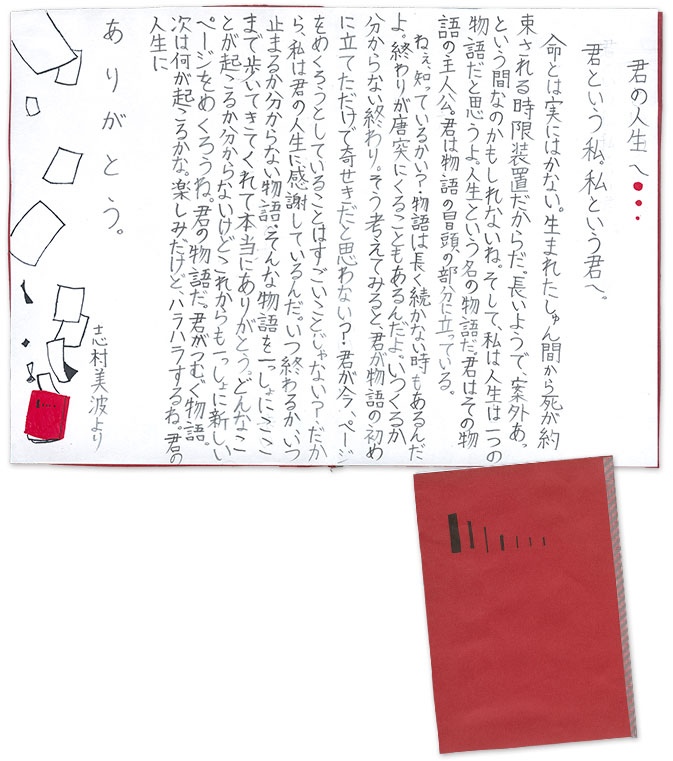 君の人生へ・・・
君という私。私という君へ。
命とは実にはかない。生まれたしゅん間から死が約
束される時限装置だからだ。長いようで、案外あっ
という間なのかもしれないね。そして、私は人生は一つの
物語だと思うよ。人生という名の物語だ。君はその物
語の主人公。君は物語の冒頭の部分に立っている。
ねぇ、知っているかい?物語は長く続かない時もあるんだ
よ。終わりが唐突にくることもあるんだよ。いつくるか
分からない終わり。そう考えてみると、君が物語の初め
に立てただけで奇せきだと思わない?君が今、ページ
をめくろうとしていることはすごいことじゃない?だか
ら、私は君の人生に感謝しているんだ。いつ終わるか、いつ
止まるか分からない物語。そんな物語を一っしょにここ
まで歩いてきてくれて本当にありがとう。どんなこ
とが起こるか分からないけどこれからも一っしょに新しい
ページをめくろうね。君の物語だ。君がつむぐ物語。
次は何が起こるかな。楽しみだけど、ハラハラするね。君の
人生に
ありがとう。
志村美波より